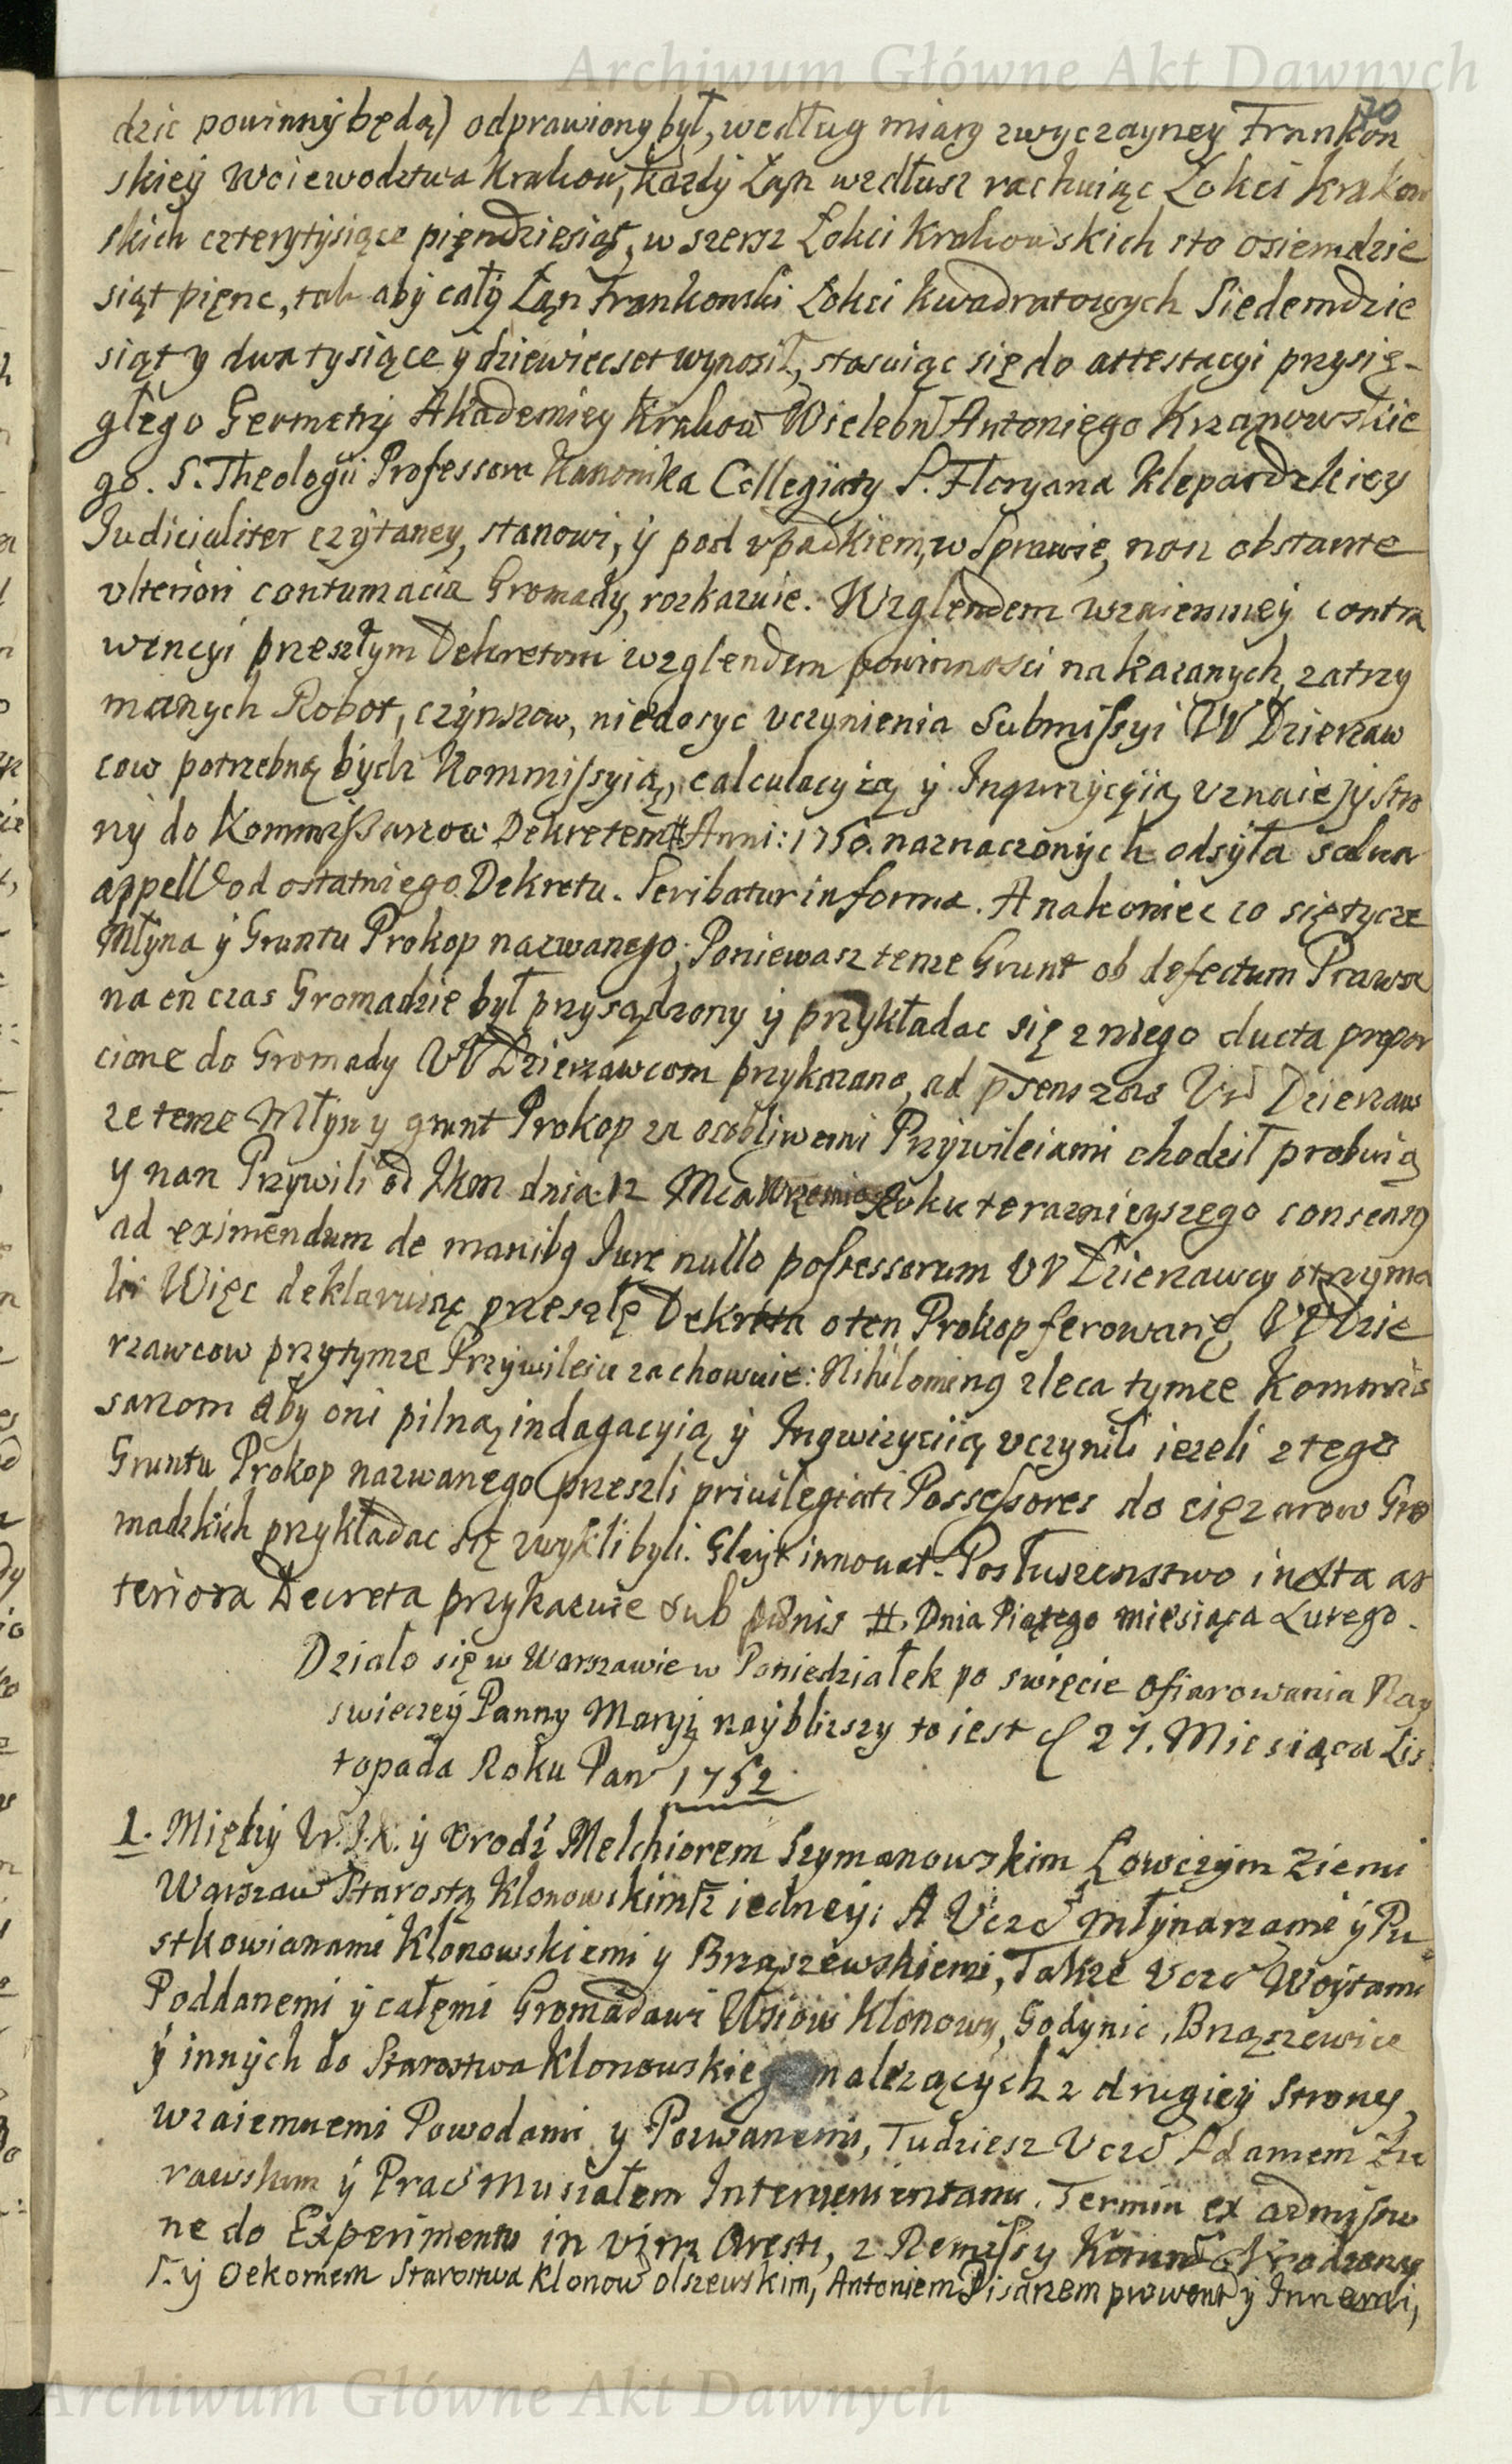 Archiwum Główne Akt Dawnych
70
dzic powinny będą) odprawiony był, według miary zwyczayney Frankon
skiey Woiewodztwa Krakow, każdy Łan wzdłusz rachuiąc Łokci krakow
skich czterytysiące pięndziesiąt, w szersz Łokci Krakowskich sto osiemdzie
siąt pięnc, tak aby cały Łan Frankonski Łokci kwadratowych Siedemdzie
siąt y dwa tysiące y dziewiecset wynosił, stosuiąc się do attestacyi przysię-
głego Geometry Akademiey Krakow Wielebn Antoniego Krząnowskie
go. S. Theologii Professora Kanonika Collegiaty S. Floryana Klepardzkiey
Judicialiter czytaney, stanowi, y pod upadkiem w Sprawie, non obstante
ulteriori contumacia Gromady, rozkazuie. Wzglendem wzaiemney contra
wencyi przeszłym Dekretom wzglendem powinnosci nakazanych, zatrzy
manych Robot, czynszow, niedosyc uczynienia Submissyi W Dzierzaw
cow potrzebną bydz Kommissyią, calculacyią y Inquizycyią uznaie y stro
ny do Kommissarzow Dekretem # Anni: 1750. naznaczonych odsyła salva
appell od ostatniego Dekretu. Scribatur in forma. A nakoniec co się tycze
Młyna y Gruntu Prokop nazwanego; Poniewasz tenze Grunt ob defectum Prawa
na en czas Gromadzie był przysądzony y przykładac się z niego ducta propor
cione do Gromady W Dzierzawcom przykazano, ad psens zas W Dzierzaw
ze tenze Młyn y grunt Prokop za osobliwemi Przywileiami chodził probuią
y nan Przywili od Jkm dnia 12 Mca Wrzesnia Roku terazneyszego consensy
ad eximendum de manibg Jure nullo possessorum W Dzierzawcy otrzyma
li Więc deklaruiąc przeszłe Dekreta o ten Prokop ferowane, W Dzie
rzawcow przytymze Przywileiu zachowuie: Nihiloming zleca tymze Kommis
sarzom aby oni pilną indagacyią y Inqwizyciią uczynili iezeli z tego
Gruntu Prokop nazwanego przeszli privilegiati Possessores do ciężarow Gro
madzkich przykładac się zwykli byli. Gleyt innovat. Posłuszenstwo iuxta an
teriora Decreta przykazuie sub pœnis #. Dnia Piątego miesiąca Lutego.
Działo się w Warszawie w Poniedziałek po swięcie Ofiarowania Nay
swieczey Panny Maryi naybliszy to iest d 27. Miesiąca Lis
topada Roku Pan 1752
1. Między Ur. J.K. y Urodź Melchiorem Szymanowskim Łowczym Ziemi
Warszaw Starostą Klonowskim z iedney; A Uczc Młynarzami y Pu
stkowianami Klonowskiemi y Brząszewskiemi, Takze Uczc Woytami
Poddanemi y całemi Gromadami Wsiow Klonowy, Godynic, Brząszewice
y innych do Starostwa Klonowskiego nalezących z drugiey Strony,
wzaiemnemi Powodami y Pozwanemi, Tudziesz Uczc Adamem Zu
rawskim y Prac Musiałem Intervenientami. Termin ex admissio
ne do Experimentu in vim Aresti, z Remissy Urodzony
S. y Oekonem Starostwa Klonow Olszewskim, Antoniem Pisarzem prowent y Innemi,
Archiwum Główne Akt Dawnych